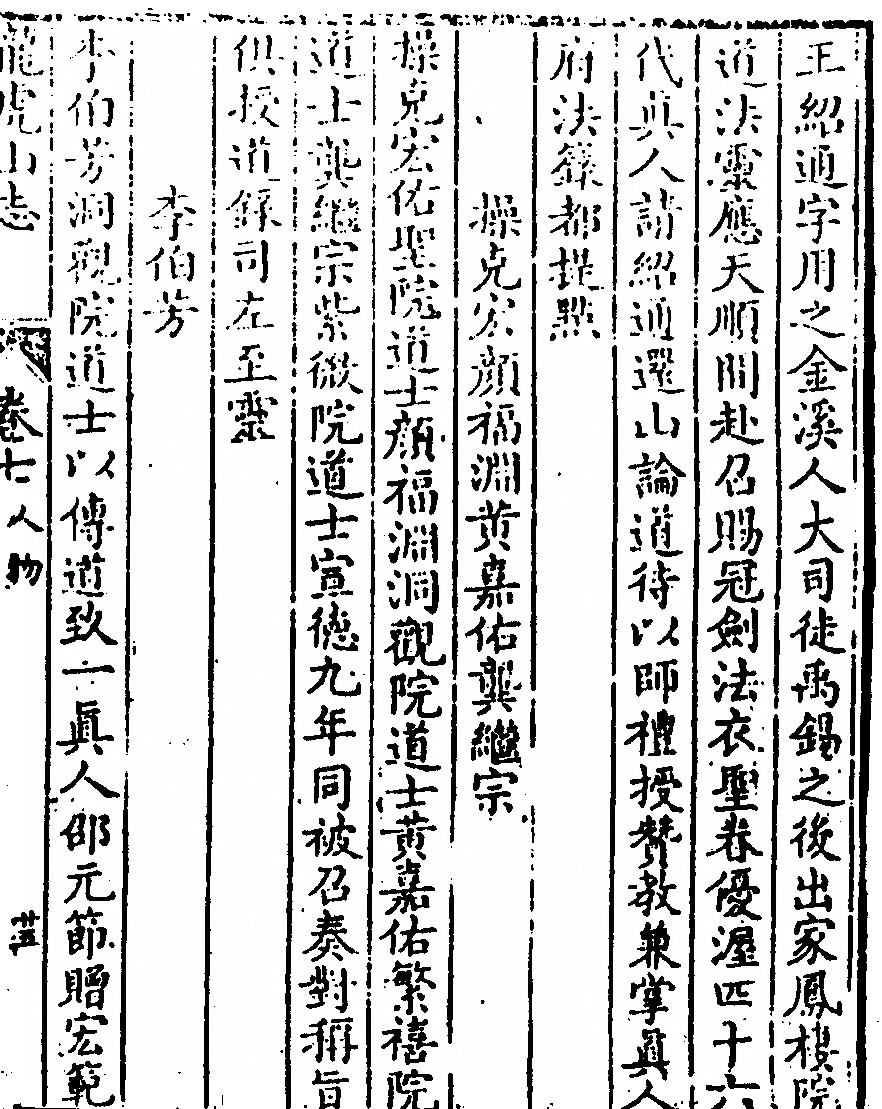 王紹通字用之金溪人大司徒禹錫之後出家鳳樓院
道法靈應天順間赴召賜冠劍法衣聖眷優渥四十六
代眞人請紹通還山論道待以師禮授贊教兼掌眞人
府法籙都提點
操克宏顏福淵黃嘉佑龔繼宗
操克宏佑聖院道士顏福淵洞觀院道士黃嘉佑繁禧院
道士龔繼宗紫微院道士宣德九年同被召奏對稱旨
俱授道錄司左至靈
李伯芳
李伯芳洞觀院道士以傳道致一眞人邵元節贈宏範
龍虎山志
卷七人物
廿五